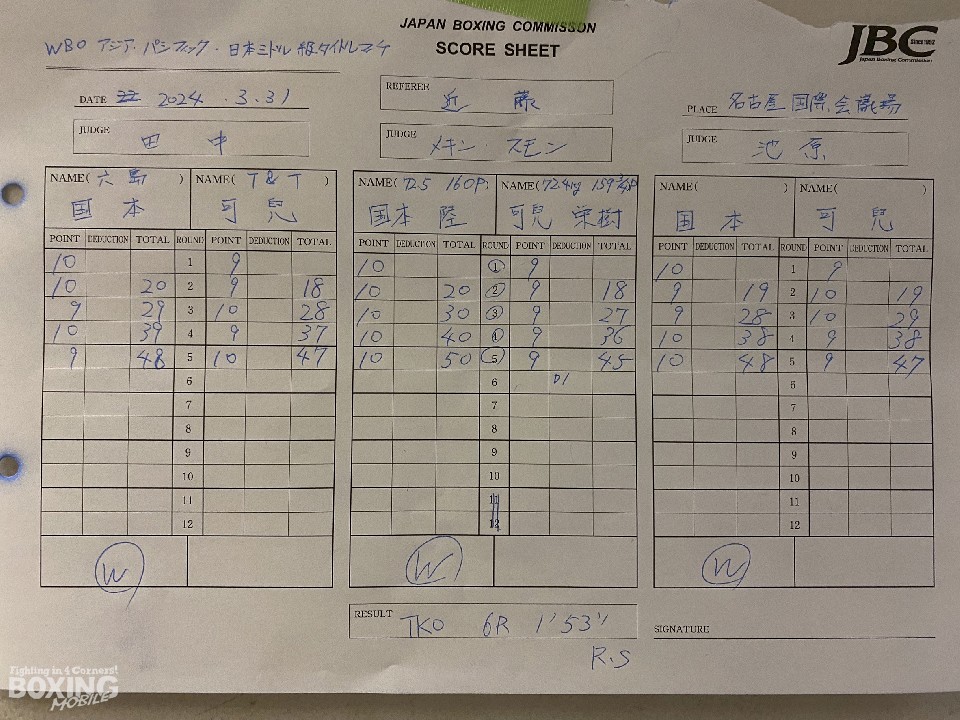 JAPAN BOXING COMMISSON
SCORE SHEET
JBC
Since 1952
Japan Boxing Commission
WBO アジア・パシフィック・日本ミドル級タイトルマッチ
DATE 2024.3.31
REFERER 近藤
PLACE 名古屋国際会議場
JUDGE 田中
JUDGE メキン・スモン
JUDGE 池原
NAME(六島) NAME(T&T)
国本 可児
NAME(72.5 160P) NAME(72.4kg 159 3/4P)
国本陸 可兒栄樹
NAME( ) NAME( )
国本 可児
POINT DEDUCTION TOTAL ROUND POINT DEDUCTION TOTAL POINT DEDUCTION TOTAL ROUND POINT DEDUCTION TOTAL POINT DEDUCTION TOTAL ROUND POINT DEDUCTION TOTAL
10 1 9 10 1 9 10 1 9
10 20 2 9 18 10 20 2 9 18 9 19 2 10 19
9 29 3 10 28 10 30 3 9 27 9 28 3 10 29
10 39 4 9 37 10 40 4 9 36 10 38 4 9 38
9 48 5 10 47 10 50 5 9 45 10 48 5 9 47
6 6 D1 6
7 7 7
8 8 8
9 9 9
10 10 10
11 11 11
12 12 12
W W W
RESULT TKO 6R 1'53"
R.S
SIGNATURE
Fighting in 4 Corners!
BOXING
MOBILE